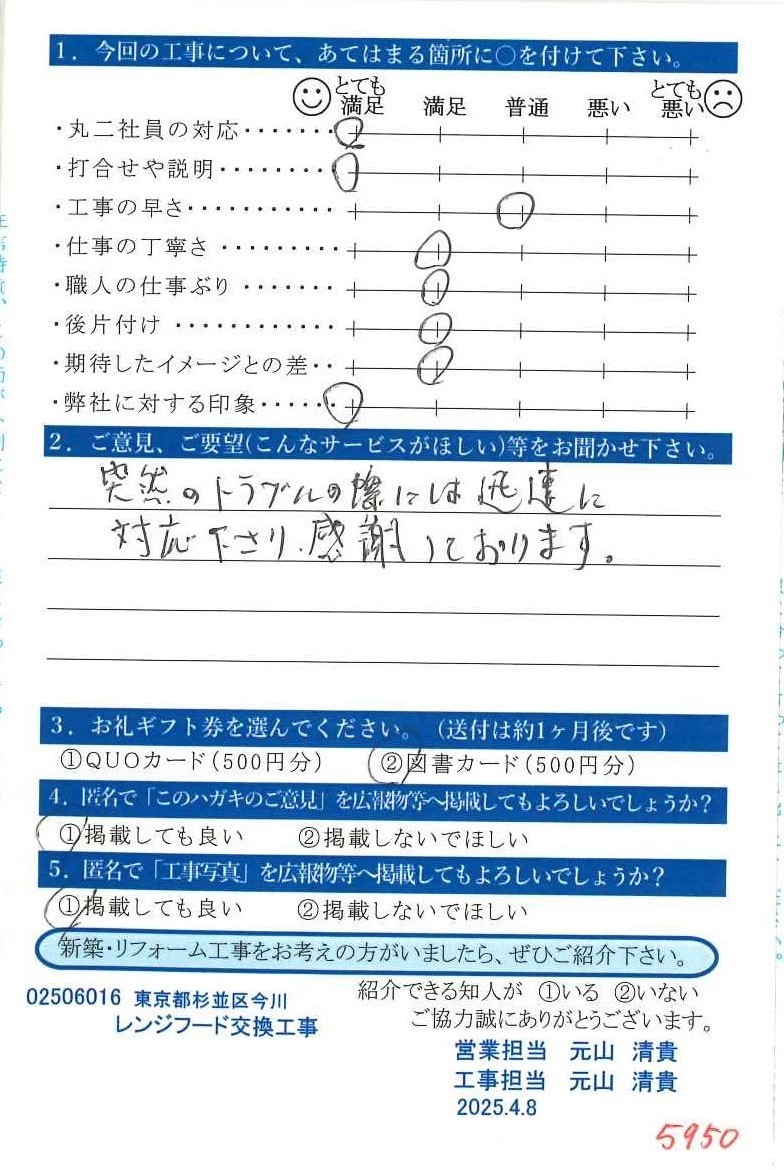 1．今回の工事について、あてはまる箇所に○を付けて下さい。
とても満足 満足 普通 悪い とても悪い
・丸二社員の対応・・・・・・・
・打合せや説明・・・・・・・・
・工事の早さ・・・・・・・・・・・
・仕事の丁寧さ ・・・・・・・・・
・職人の仕事ぶり ・・・・・・・
・後片付け ・・・・・・・・・・・・
・期待したイメージとの差・・
・弊社に対する印象・・・・・・
2．ご意見、ご要望(こんなサービスがほしい)等をお聞かせ下さい。
突然のトラブルの際には迅速に
対応下さり、感謝しております。
3．お礼ギフト券を選んでください。（送付は約1ヶ月後です）
①QUOカード(500円分) ②図書カード(500円分)
4．匿名で「このハガキのご意見」を広報物等へ掲載してもよろしいでしょうか？
①掲載しても良い ②掲載しないでほしい
5．匿名で「工事写真」を広報物等へ掲載してもよろしいでしょうか？
①掲載しても良い ②掲載しないでほしい
新築・リフォーム工事をお考えの方がいましたら、ぜひご紹介下さい。
紹介できる知人が ①いる ②いない
ご協力誠にありがとうございます。
02506016 東京都杉並区今川
レンジフード交換工事
営業担当 元山 清貴
工事担当 元山 清貴
2025.4.8
5950